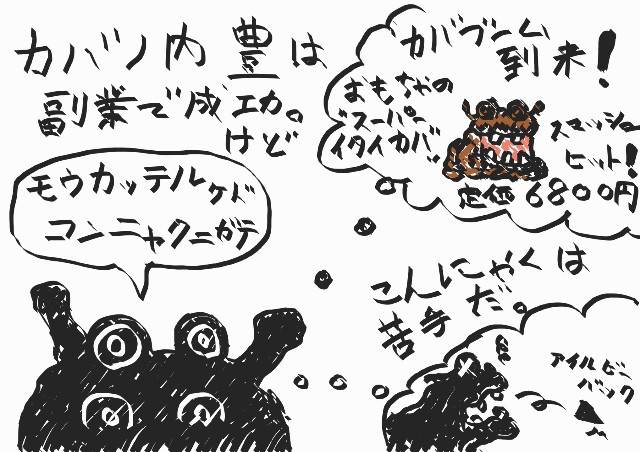 カバソ内 豊は
副業で成功。
けど
モウカッテルケド
コンニャクニガテ
カバブーム
到来!
おもちゃの
"スーパー
イタイカバ"
スマッシュ
ヒット!
定価 6800円
こんにゃくは
苦手だ。
アイルビー
バック